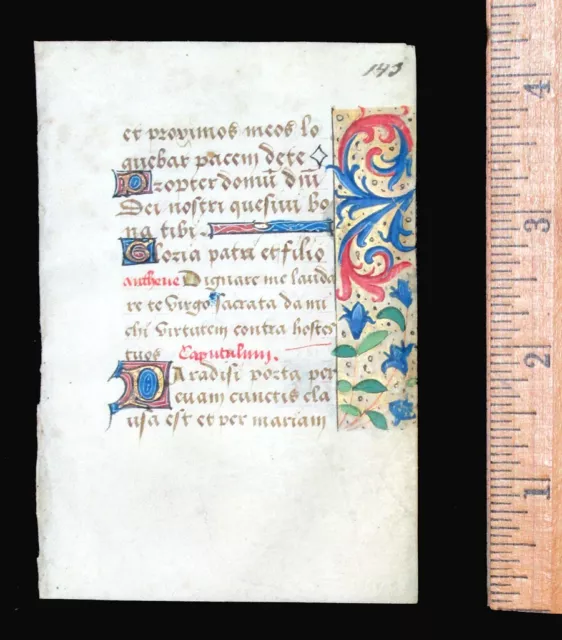 143
et proximos meos lo
quebar pacem de te
Propter domū dn̄i
Dei nostri quesivi bo
na tibi
Gloria patri et filio
antheue Dignare me lauda
re te Virgo sacrata da mi
chi Virtutem contra hostes
tuos Capitulum.
Paradisi porta per
evam cunctis cla
usa est et per mariam
4
3
2
1